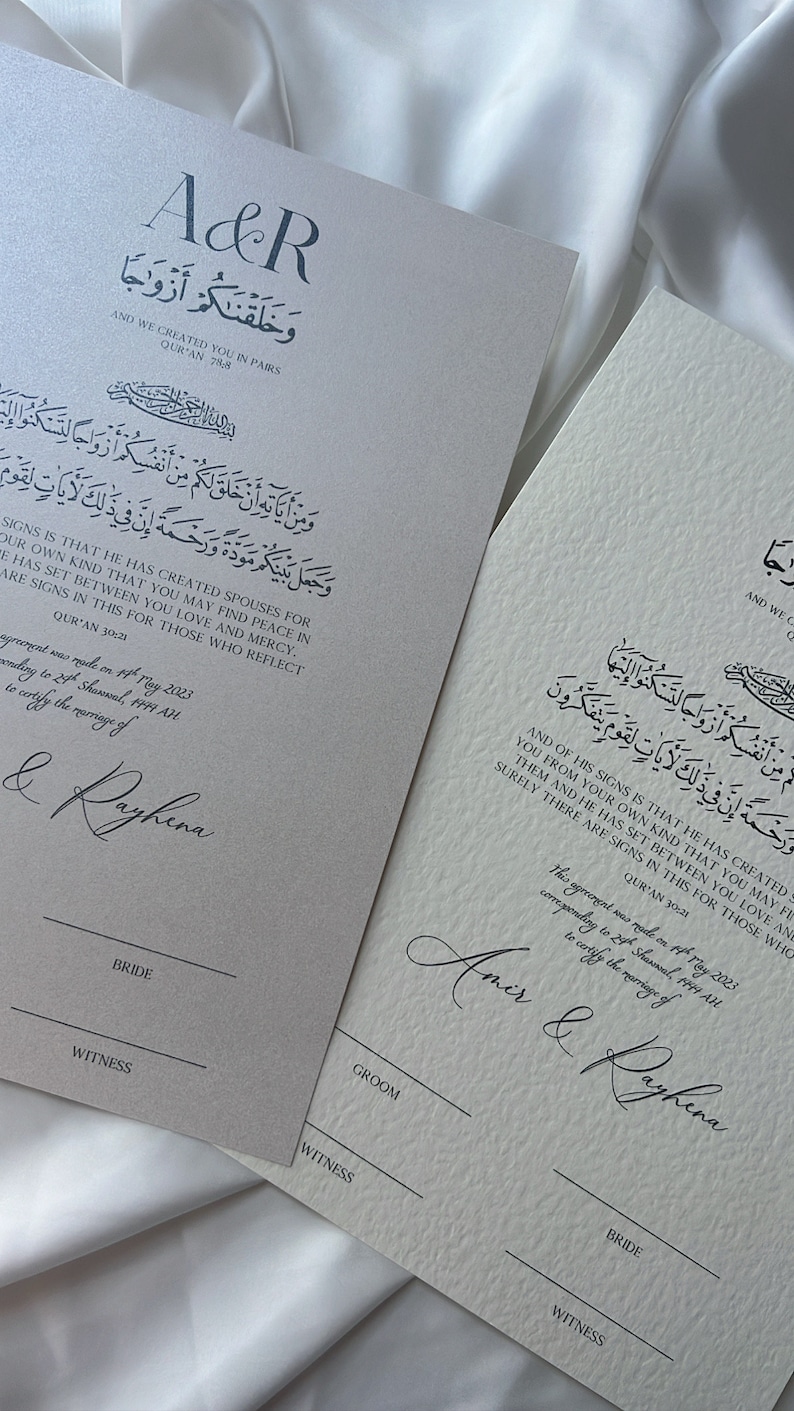 A&R
وَخَلَقْنَٰكُمْ أَزْوَٰجًا
AND WE CREATED YOU IN PAIRS
QUR'AN 78:8
بسم الله الرحمن الرحيم
وَمِنْ أَيَاتِهِ أَنْ خَلَقَ لَكُمْ مِنْ أَنْفُسِكُمْ أَزْوَاجًا لِتَسْكُنُوا
وَجَعَلَ بَيْنَكُمْ مَوَدَّةً وَرَحْمَةً إِنَّ فِي ذَٰلِكَ لَأَيَاتٍ لِقَوْمٍ
SIGNS IS THAT HE HAS CREATED SPOUSES FOR
OUR OWN KIND THAT YOU MAY FIND PEACE IN
HE HAS SET BETWEEN YOU LOVE AND MERCY.
ARE SIGNS IN THIS FOR THOSE WHO REFLECT
QUR'AN 30:21
agreement was made on 14th May 2023
ponding to 24th Shawwal, 1444 AH
to certify the marriage of
& Rayhena
BRIDE
WITNESS
AND WE C
مِنْ أَنْفُسِكُمْ أَزْوَاجًا لِتَسْكُنُوا إِلَيْهَا
وَرَحْمَةً إِنَّ فِي ذَٰلِكَ لَأَيَاتٍ لِقَوْمٍ يَتَفَكَّرُونَ
AND OF HIS SIGNS IS THAT HE HAS CREATED S
YOU FROM YOUR OWN KIND THAT YOU MAY FI
THEM AND HE HAS SET BETWEEN YOU LOVE AN
SURELY THERE ARE SIGNS IN THIS FOR THOSE WHO
QUR'AN 30:21
This agreement was made on 14th May 2023
corresponding to 24th Shawwal, 1444 AH
to certify the marriage of
Amir & Rayhena
GROOM
BRIDE
WITNESS
WITNESS